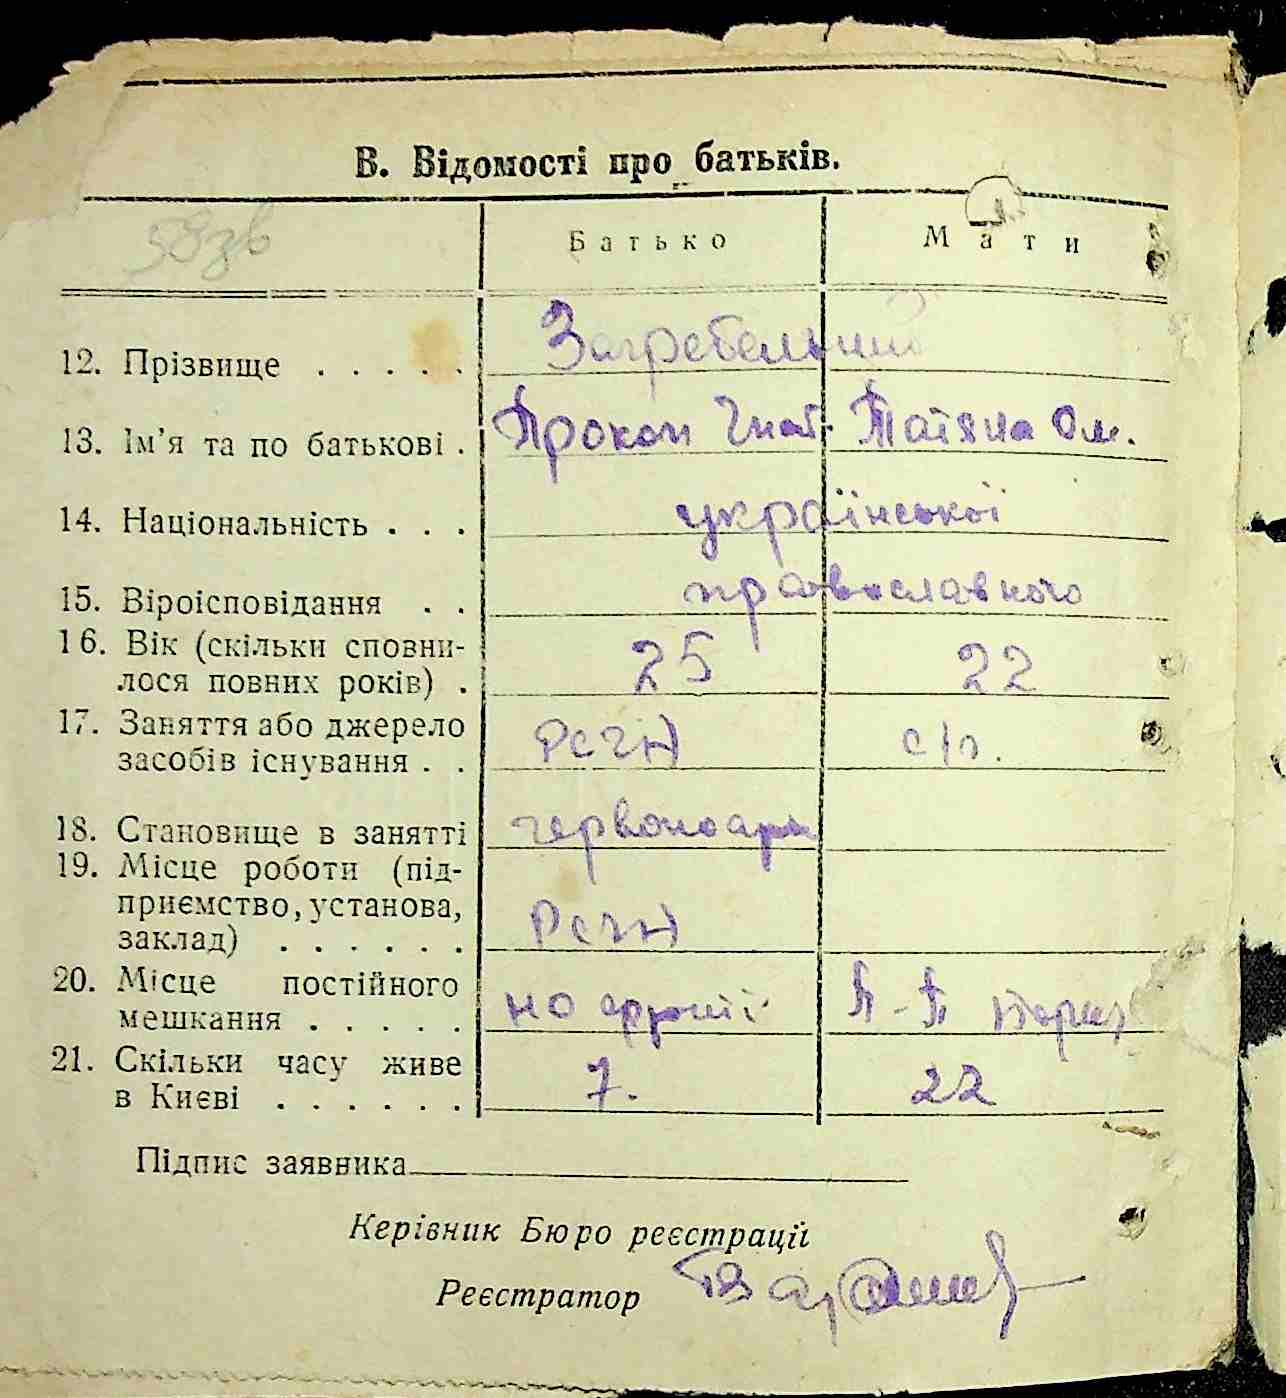 В. Відомості про батьків.
58зв
Батько Мати
12. Прізвище . . . . . Загребельний
13. Ім'я та по батькові . Прокоп Гнат. Татяна Ом.
14. Національність . . . української
15. Віроісповідання . . православного
16. Вік (скільки сповни-
лося повних років) . 25 22
17. Заняття або джерело
засобів існування . . РСЧА с/г.
18. Становище в занятті червоноарм
19. Місце роботи (під-
приємство, установа,
заклад) . . . . . . РСЧА
20. Місце постійного
мешкання . . . . . в армії
21. Скільки часу живе
в Києві . . . . . . 7. 22
Підпис заявника
Керівник Бюро реєстрації
Реєстратор